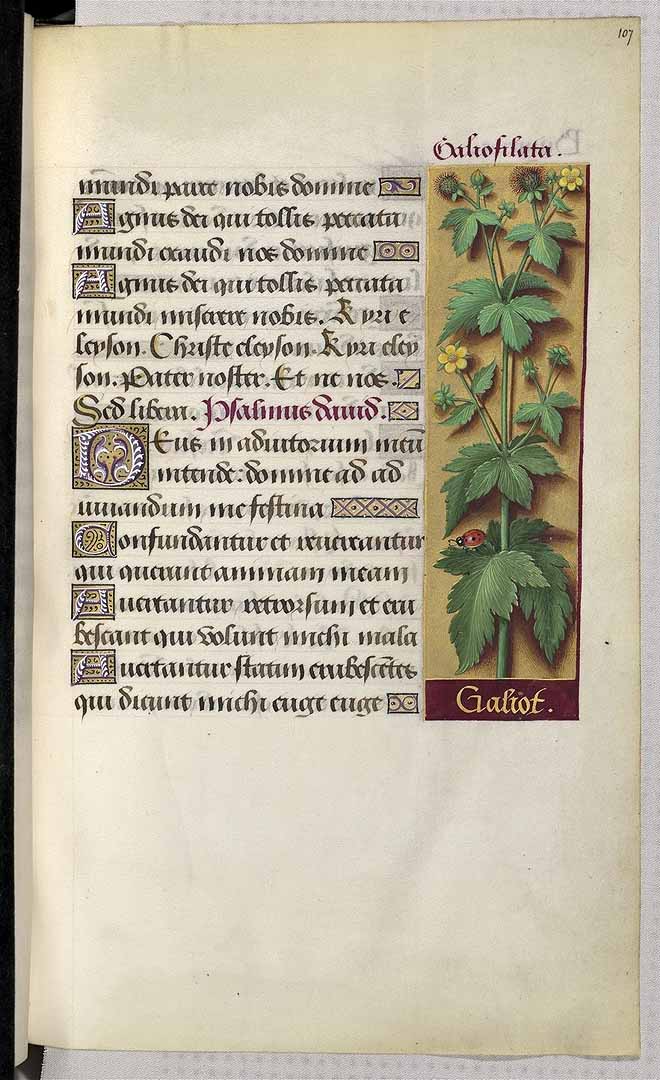 107
Galiofilata.
mundi parce nobis domine
Agnus dei qui tollis peccata
mundi exaudi nos domine
Agnus dei qui tollis peccata
mundi miserere nobis. Kyri e
leyson. Christe eleyson. Kyri eley
son. Pater noster. Et ne nos.
Sed libera. Psalmus david.
Deus in adiutorium meū
intende: domine ad ad
iuuandum me festina
Confundantur et reuereantur
qui querunt animam meam
Auertantur retrorsum et eru
bescant qui volunt michi mala
Auertantur statim erubescētes
qui dicunt michi euge euge
Galiot.